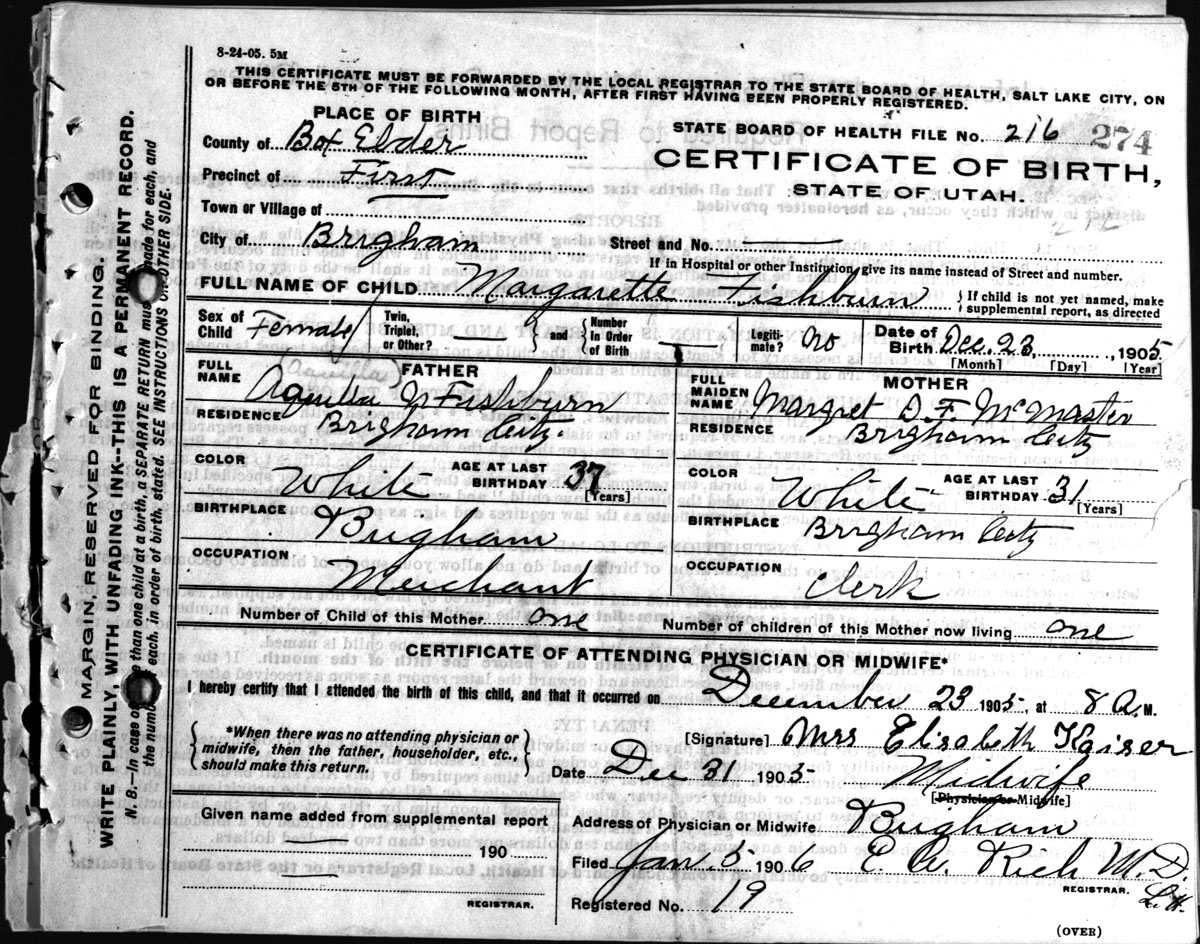 8-24-05. 5M
THIS CERTIFICATE MUST BE FORWARDED BY THE LOCAL REGISTRAR TO THE STATE BOARD OF HEALTH, SALT LAKE CITY, ON
OR BEFORE THE 5TH OF THE FOLLOWING MONTH, AFTER FIRST HAVING BEEN PROPERLY REGISTERED.
PLACE OF BIRTH
STATE BOARD OF HEALTH FILE No. 216 274
County of Box Elder
CERTIFICATE OF BIRTH,
STATE OF UTAH.
Precinct of First
Town or Village of
212
City of Brigham Street and No.
If in Hospital or other Institution, give its name instead of Street and number.
FULL NAME OF CHILD Margarette Fishburn { If child is not yet named, make
supplemental report, as directed
Sex of Child Female Twin, Triplet, or Other? and Number in Order of Birth Legiti- mate? no Date of Birth Dec. 23, 1905
[Month] [Day] [Year]
(Aquilla) FATHER
FULL NAME Aquilla N Fishburn
RESIDENCE Brigham City.
COLOR White AGE AT LAST BIRTHDAY 37
[Years]
BIRTHPLACE Brigham
OCCUPATION Merchant
MOTHER
FULL MAIDEN NAME Margret D. F. McMaster
RESIDENCE Brigham City
COLOR White AGE AT LAST BIRTHDAY 31
[Years]
BIRTHPLACE Brigham City
OCCUPATION Clerk
Number of Child of this Mother one Number of children of this Mother now living one
CERTIFICATE OF ATTENDING PHYSICIAN OR MIDWIFE*
I hereby certify that I attended the birth of this child, and that it occurred on December 23 1905, at 8 A. M.
*When there was no attending physician or
midwife, then the father, householder, etc.,
should make this return.
[Signature] Mrs Elisabeth Kaiser
Date Dec 31 1905 Midwife
[Physician or Midwife]
Given name added from supplemental report
190
REGISTRAR.
Address of Physician or Midwife Brigham
Filed Jan 5 1906 E. W. Rich M. D.
REGISTRAR.
Registered No. 19
(OVER)
MARGIN RESERVED FOR BINDING.
WRITE PLAINLY, WITH UNFADING INK--THIS IS A PERMANENT RECORD.
N. B.—In case of more than one child at a birth, a SEPARATE RETURN must be made for each, and
the number of each, in order of birth, stated. SEE INSTRUCTIONS ON OTHER SIDE.